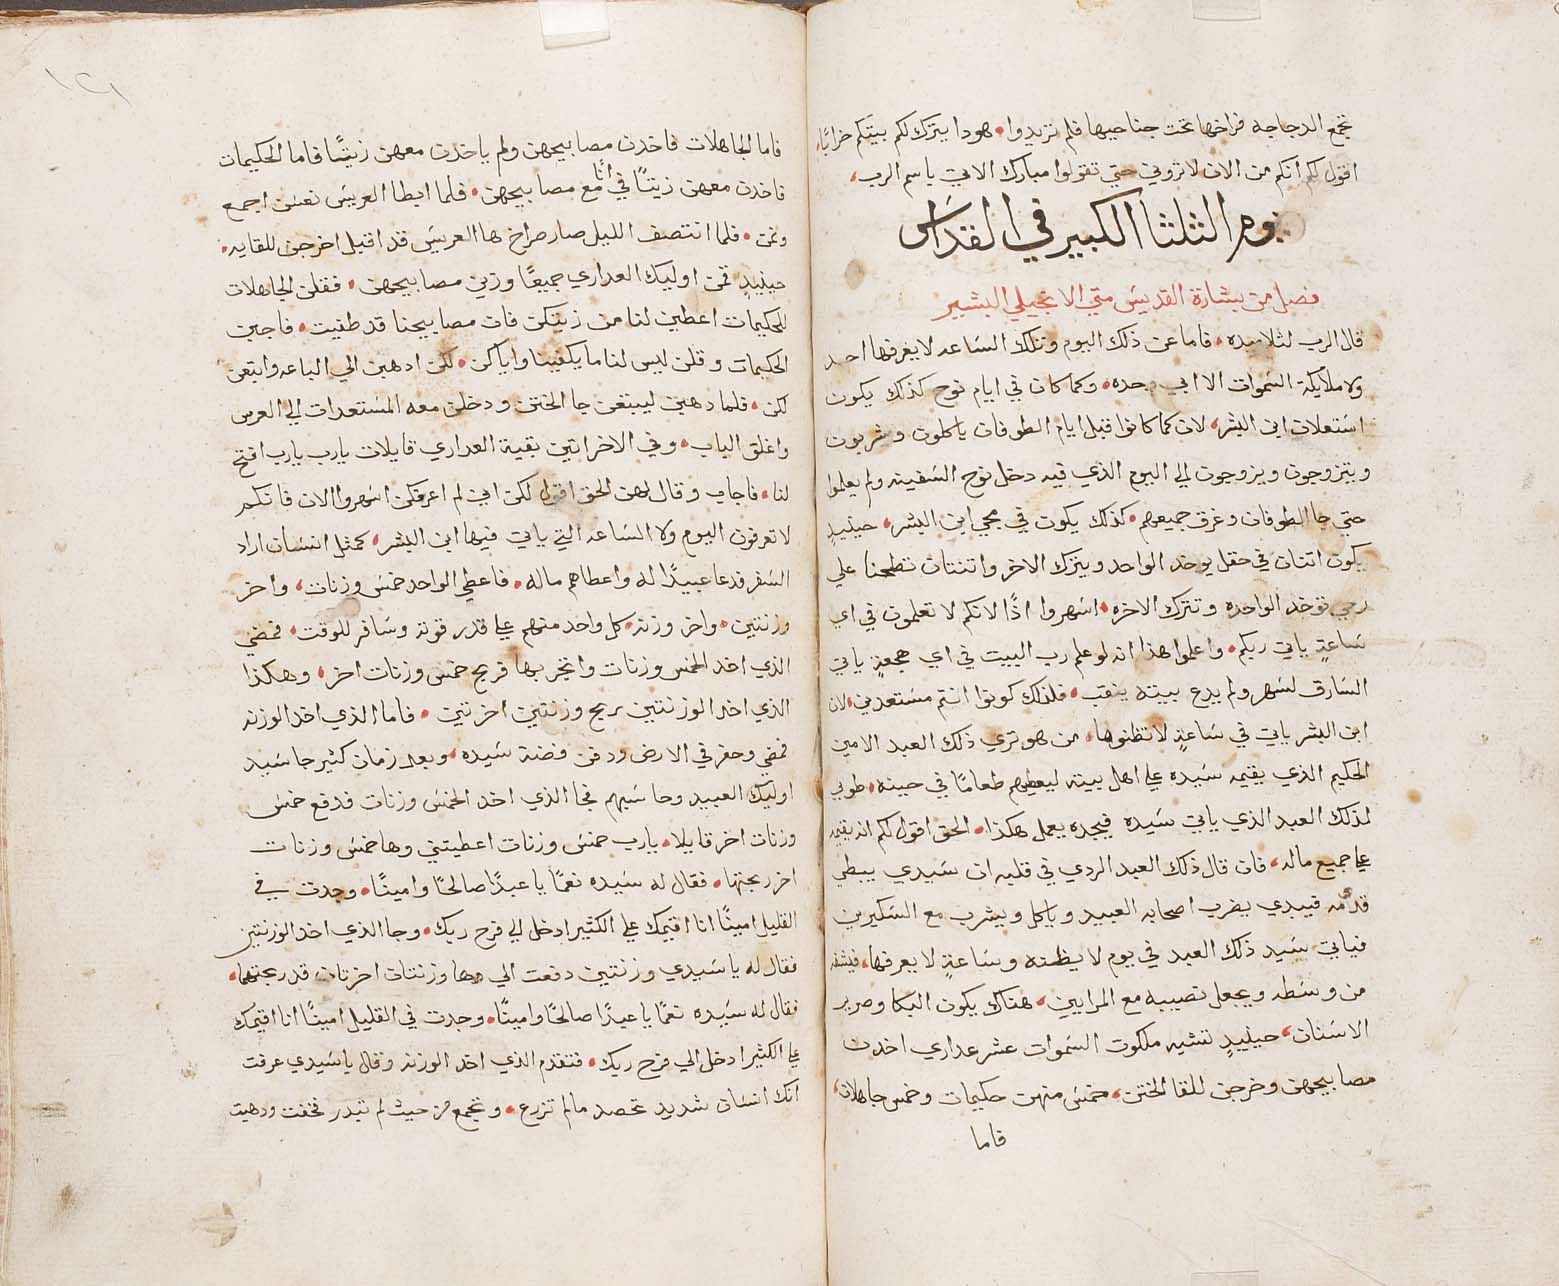 تجمع الدجاجه فراخها تحت جناحيها فلم تريدوا، هودا يترك لكم بيتكم خرابًا،
اقول لكم انكم من الان لا تروني حتي تقولوا مبارك الاتي باسم الرب،
يوم الثلثا الكبير في القداس
فصل من بشارة القديس متي الانجيلي البشير
قال الرب لتلاميده، فاما عن ذلك اليوم وتلك الساعه لا يعرفها احد
ولا ملايكة السموات الا ابي وحده، وكما كان في ايام نوح كذلك يكون
استعلان ابن البشر، لان كما كانوا قبل ايام الطوفان ياكلون وشربون
ويتزوجون ويزوجون الي اليوم الذي فيه دخل نوح السفينه ولم يعلموا
حتي جا الطوفان وغرق جميعهم، كذلك يكون في مجي ابن البشر، حينيدٍ
يكون اتنان في حقل يوخد الواحد ويترك الاخر واتنتان تطحنا علي
رحي توخد الواحده وتترك الاخره، اسهروا اذًا لانكم لا تعلمون في اي
ساعةٍ ياتي ربكم، واعلموا هذا انه لو علم رب البيت في اي هجعةٍ ياتي
السارق لسهر ولم يدع بيته ينقب، فلذلك كونوا انتم مستعدين، لان
ابن البشر ياتي في ساعةٍ لا تظنوها، من هو تري ذلك العبد الامين
الحكيم الذي يقيمه سيده علي اهل بيته ليعطيهم طعامًا في حينه، طوبي
لذلك العبد الذي ياتي سيده فيجده يعمل هكذا، الحق اقول لكم انه يقيمه
علي جميع ماله، فان قال ذلك العبد الردي في قلبه ان سيدي يبطي
قدومه فيبدي يضرب اصحابه العبيد وياكل ويشرب مع السكيرين
فياتي سيد ذلك العبد في يوم لا يظنه وساعةٍ لا يعرفها، فيشقه
من وسطه ويجعل نصيبه مع المرايين، هناك يكون البكا وصرير
الاسنان، حينيدٍ تشبه ملكوت السموات عشر عداري اخدن
مصابيحهن وخرجن للقا الختن، خمس منهن حكيمات وخمس جاهلات،
فاما
١٢١
فاما الجاهلات فاخدن مصابيحهن ولم ياخدن معهن زيتًا فاما الحكيمات
فاخدن معهن زيتًا في انا مع مصابيحهن، فلما ابطا العريس نعسن اجمع
ونمن، فلما انتصف الليل صار صراخ ها العريس قد اقبل اخرجن للقايه،
حينيدٍ قمن اوليك العداري جميعًا وزين مصابيحهن، فقلن الجاهلات
للحكيمات اعطين لنا من زيتكن فان مصابيحنا قد طفيت، فاجبن
الحكيمات وقلن ليس لنا ما يكفينا واياكن، لكن ادهبن الي الباعه وابتعن
لكن، فلما دهبن ليبتعن جا الختن ودخلن معه المستعدات الي العرس
واغلق الباب، وفي الاخر اتين بقية العداري قايلات يارب يارب افتح
لنا، فاجاب وقال لهن الحق اقول لكن اني لم اعرفكن اسهروا الان فانكم
لا تعرفون اليوم ولا الساعه التي ياتي فيها ابن البشر، كمثل انسان اراد
السفر فدعا عبيدًا له واعطاهم ماله، فاعطي الواحد خمس وزنات، واخر
وزنتين، واخر وزنه، كل واحد منهم علي قدر قوته وسافر للوقت، فمضي
الذي اخد الخمس وزنات واتجر بها فربح خمس وزنات اخر، وهكذا
الذي اخد الوزنتين ربح وزنتين اخرتين، فاما الذي اخد الوزنه
فمضي وحفر في الارض ودفن فضة سيده، وبعد زمان كثير جا سيد
اوليك العبيد وحاسبهم فجا الذي اخد الخمس وزنات فدفع خمس
وزنات اخر قايلا، يارب خمس وزنات اعطيتني وها خمس وزنات
اخر ربحتها، فقال له سيده نعمًا يا عبدًا صالحًا وامينًا، وجدت في
القليل امينًا انا اقيمك علي الكثير ادخل الي فرح ربك، وجا الذي اخد الوزنتين
فقال له يا سيدي وزنتين دفعت الي وها وزنتان اخرتان قد ربحتهما،
فقال له سيده نعمًا يا عبدًا صالحًا وامينًا، وجدت في القليل امينًا انا اقيمك
علي الكثير ادخل الي فرح ربك، فتقدم الذي اخد الوزنه وقال يا سيدي عرفت
انك انسان شديد تحصد ما لم تزرع، وتجمع من حيث لم تبدر فخفت ودهبت